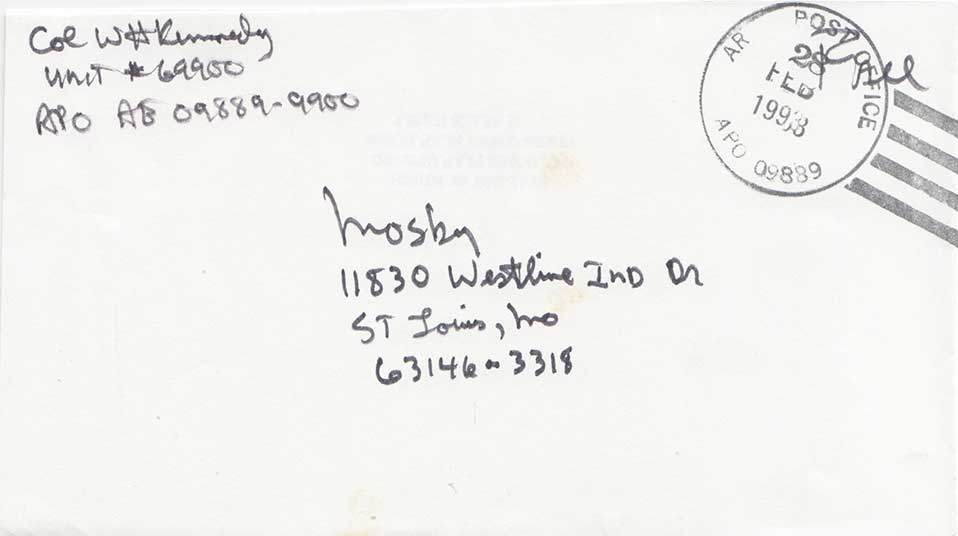 Col WH Kennedy
Unit # 69900
APO AE 09889-9900
Free
AR POST OFFICE
28
FEB
1993
APO 09889
Mosby
11830 Westline Ind Dr
ST Louis, Mo
63146-3318